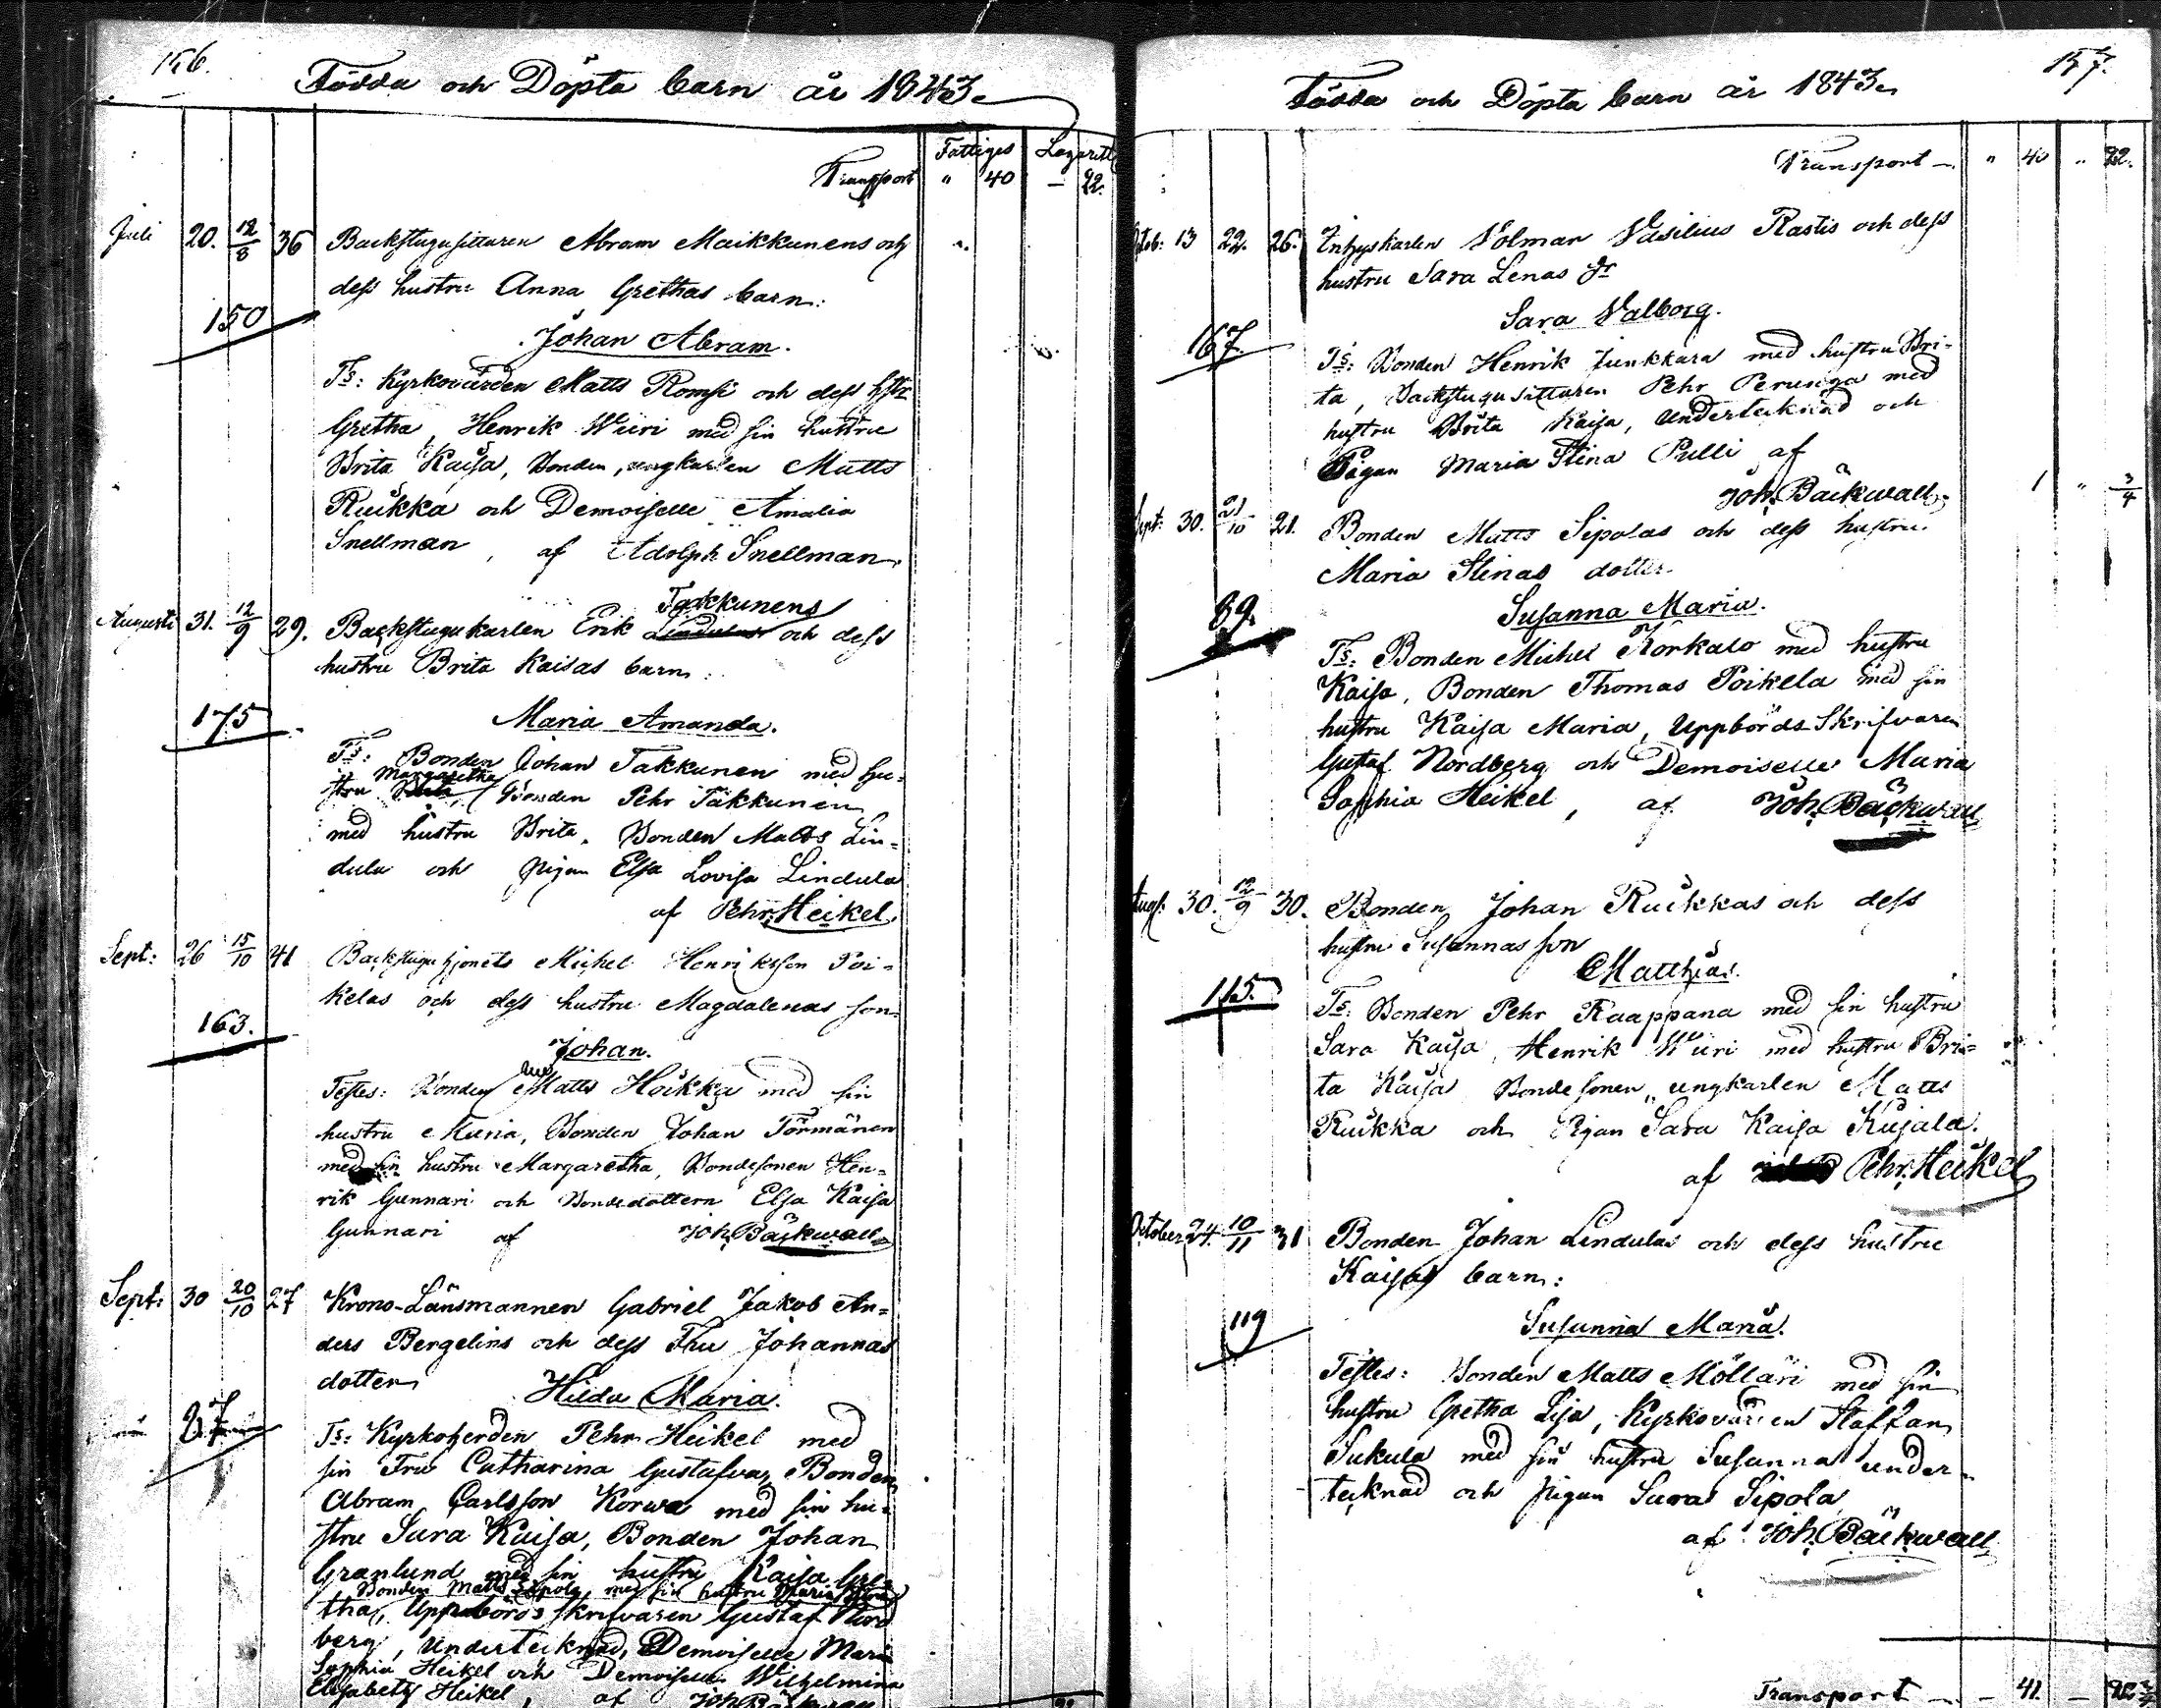 156.
Födda och Döpta barn år 1843.
Fattiges Lazarett
Transport " 40 — 22.
Juli 20. 12/8 36 Backstugusittaren Abram Maikkunens och
dess hustru Anna Grethas barn:
150
Johan Abram.
Ts: Kyrkovärden Matts Romsi och dess hstr
Gretha, Henrik Wiiri med sin hustru
Brita Kaisa, Bonden, ungkarlen Matts
Ruikka och Demoiselle Amalia
Snellman, af Adolph Snellman.
Takkunens
Augusti 31. 12/9 29. Backstugukarlen Erik Lindulas och dess
hustru Brita Kaisas barn:
175
Maria Amanda.
Ts: Bonden Johan Takkunen med hu-
Margaretha
stru Brita, Bonden Pehr Takkunen
med hustru Brita, Bonden Matts Lin-
dula och pigan Elsa Lovisa Lindula
af Pehr Heikel.
Sept: 26 15/10 41 Backstuguhjonets Michel Henriksson Poi-
kelas och dess hustru Magdalenas son
163.
Johan.
Testes: Bonden Matts Hoikka med sin
hustru Maria, Bonden Johan Törmänen
med sin hustru Margaretha, Bondesonen Hen-
rik Gunnari och Bondedottern Elsa Kaisa
Gunnari af Joh. Bäckwall
Sept: 30 20/10 27 Krono-Länsmannen Gabriel Jakob An-
ders Bergelins och dess Fru Johannas
dotter
Hilda Maria.
87
Ts: Kyrkoherden Pehr Heikel med
sin Fru Catharina Gustafva, Bonden
Abram Carlsson Korwa med sin hu-
stru Sara Kaisa, Bonden Johan
Granlund med sin hustru Kaisa Gre-
Bonden Matts Sipola, med sin hustru Maria Stina
tha, Uppbörds skrifvaren Gustaf Nord
berg, undertecknad, Demoiselle Maria
Sophia Heikel och Demoiselle Wilhelmina
Elisabeth Heikel, af Joh. Bäckwall
157.
Födda och Döpta barn år 1843.
Transport — " 40 " 22.
Octob: 13 22. 26. Inhyskarlen Volmar Wasilius Rastis och dess
hustru Sara Lenas dr
Sara Valborg.
167.
Ts: Bonden Henrik Junkkara med hustru Bri-
ta, Backstugusittaren Pehr Perunga med
hustru Brita Kaisa, undertecknad och
Pigan Maria Stina Pulli af
Joh. Bäckwall. 1 " 3/4
Sept: 30. 21/10 21. Bonden Matts Sipolas och dess hustru
Maria Stinas dotter
89.
Susanna Maria.
Ts: Bonden Michel Korkalo med hustru
Kaisa, Bonden Thomas Poikela med sin
hustru Kaisa Maria, Uppbörds Skrifvaren
Gustaf Nordberg och Demoiselle Maria
Sophia Heikel, af Joh. Bäckwall
Aug: 30. 12/9 30. Bonden Johan Ruikkas och dess
hustru Susannas son
Matthias.
115.
Ts: Bonden Pehr Raappana med sin hustru
Sara Kaisa, Henrik Wiiri med hustru Bri-
ta Kaisa Bondesonen, ungkarlen Matts
Ruikka och Pigan Sara Kaisa Kujala.
af Pehr Heikel
October 24. 10/11 31 Bonden Johan Lindulas och dess hustru
Kaisas barn:
119
Susanna Maria.
Testes: Bonden Matts Möllari med sin
hustru Gretha Lisa, Kyrkovärden Staffan
Sukula med sin hustru Susanna under-
tecknad och pigan Sara Sipola
af Joh. Bäckwall
Transport — 41.